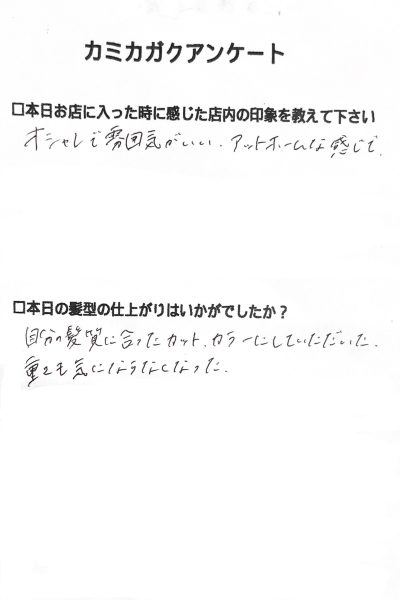 カミカガクアンケート
□本日お店に入った時に感じた店内の印象を教えて下さい
オシャレで雰囲気がいい. アットホームな感じで.
□本日の髪型の仕上がりはいかがでしたか？
自分の髪質に合ったカット、カラーにしていただいた.
重さも気にならなくなった.